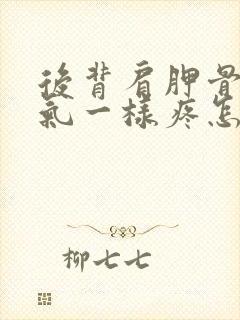 後背肩胛骨
氣一樣疼怎
柳七七